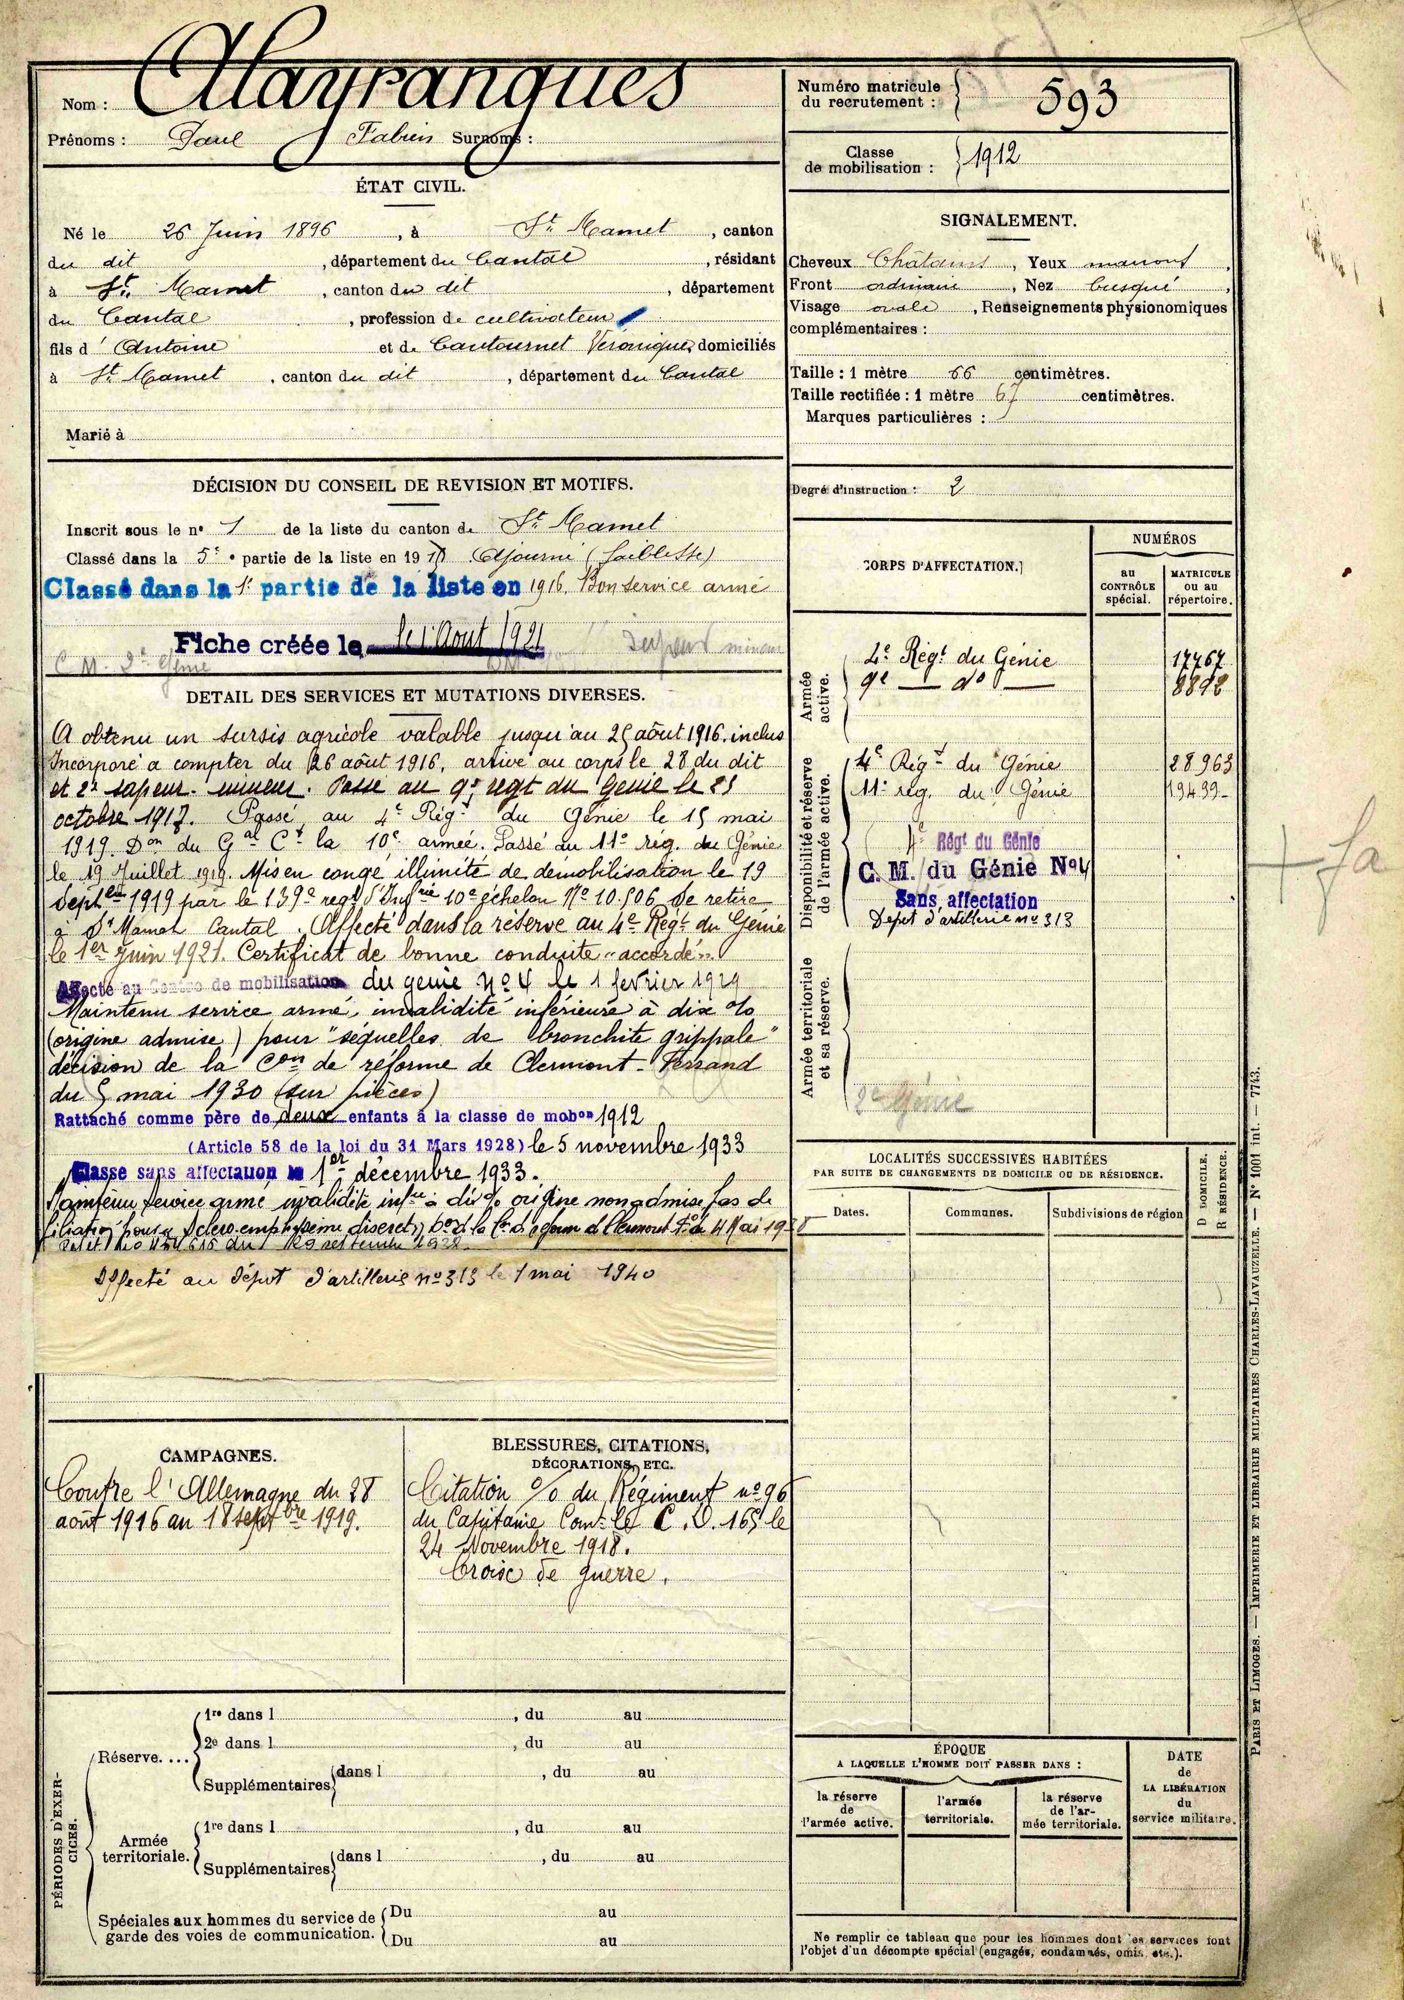 Nom : Mayrangues
Prénoms : Paul Fabien Surnoms :
ÉTAT CIVIL.
Né le 26 Juin 1896, à St. Mamet, canton
du dit, département du Cantal, résidant
à St. Mamet, canton du dit, département
du Cantal, profession de cultivateur
fils d'Antoine et de Cantournet Véronique, domiciliés
à St. Mamet, canton du dit, département du Cantal
Marié à
DÉCISION DU CONSEIL DE REVISION ET MOTIFS.
Inscrit sous le nº 1 de la liste du canton de St. Mamet
Classé dans la 5e partie de la liste en 19 Ajourné (faiblesse)
Classé dans la 1e partie de la liste en 1916. Bon service armé
Fiche créée le le 1 Août 1921
mineur
C M. 2e Génie
DETAIL DES SERVICES ET MUTATIONS DIVERSES.
A obtenu un sursis agricole valable jusqu'au 25 août 1916. inclus
Incorporé à compter du 26 août 1916, arrivé au corps le 28 du dit
et 2e sapeur-mineur. Passé au 9e régt du Génie le 25
octobre 1917. Passé au 4e Régt du Génie le 15 mai
1919. Don du Gal Ct la 10e armée. Passé au 11e rég. du Génie
le 19 Juillet 1919. Mis en congé illimité de démobilisation le 19
Septbre 1919 par le 139e regt d'Infrie 10e échelon No 10.506 Se retire
à St Mamet Cantal. Affecté dans la réserve au 4e Régt du Génie
le 1er Juin 1921. Certificat de bonne conduite "accordé".
Affecté au Centre de mobilisation du génie No 4 le 1 fevrier 1929
Maintenu service armé, invalidité inférieure à dix %
(origine admise) pour "séquelles de bronchite grippale"
décision de la Con de réforme de Clermont-Ferrand
du 5 mai 1930 (sur pièces)
Rattaché comme père de deux enfants à la classe de mobon 1912
(Article 58 de la loi du 31 Mars 1928) le 5 novembre 1933
Classé sans affectation le 1er décembre 1933.
Maintenu service armé invalidité infre à dix % origine non admise pas de
filiation pour "Scléro emphysème discret" de la de réforme de Clermont Fd du 4 Mai 1938
septembre 1938.
Affecté au Dépot d'artillerie no 313 le 1 mai 1940
CAMPAGNES.
Contre l'Allemagne du 28
août 1916 au 18 septbre 1919.
BLESSURES, CITATIONS,
DÉCORATIONS, ETC.
Citation % du Régiment no 96
du Capitaine Comt le C.D. 165 le
24 Novembre 1918.
Croix de guerre.
PÉRIODES D'EXERCICES.
Réserve....
1re dans l , du au
2e dans l , du au
Supplémentaires dans l , du au
Armée territoriale.
1re dans l , du au
Supplémentaires dans l , du au
Spéciales aux hommes du service de
garde des voies de communication.
Du au
Du au
Numéro matricule
du recrutement : 593
Classe
de mobilisation : 1912
SIGNALEMENT.
Cheveux Châtains, Yeux marrons,
Front ordinaire, Nez busqué,
Visage ovale, Renseignements physionomiques
complémentaires :
Taille : 1 mètre 66 centimètres.
Taille rectifiée : 1 mètre 67 centimètres.
Marques particulières :
Degré d'instruction : 2
CORPS D'AFFECTATION.
NUMÉROS
au
CONTRÔLE
spécial.
MATRICULE
ou au
répertoire.
Armée
active.
2e Régt du Génie 17767
9e — do — 8892
Disponibilité et réserve
de l'armée active.
4e Régt du Génie 28963
11e rég. du Génie 19439
4e Régt du Génie
C. M. du Génie No 4
Sans affectation
Dépot d'artillerie no 313
Armée territoriale
et sa réserve.
2e Génie
LOCALITÉS SUCCESSIVES HABITÉES
PAR SUITE DE CHANGEMENTS DE DOMICILE OU DE RÉSIDENCE.
D DOMICILE.
R RÉSIDENCE.
Dates.
Communes.
Subdivisions de région
ÉPOQUE
A LAQUELLE L'HOMME DOIT PASSER DANS :
la réserve
de
l'armée active.
l'armée
territoriale.
la réserve
de l'ar-
mée territoriale.
DATE
de
LA LIBÉRATION
du
service militaire.
Ne remplir ce tableau que pour les hommes dont les services font
l'objet d'un décompte spécial (engagés, condamnés, omis, etc.).
PARIS ET LIMOGES. — IMPRIMERIE ET LIBRAIRIE MILITAIRES CHARLES-LAVAUZELLE. — Nº 1001 int. — 7743.